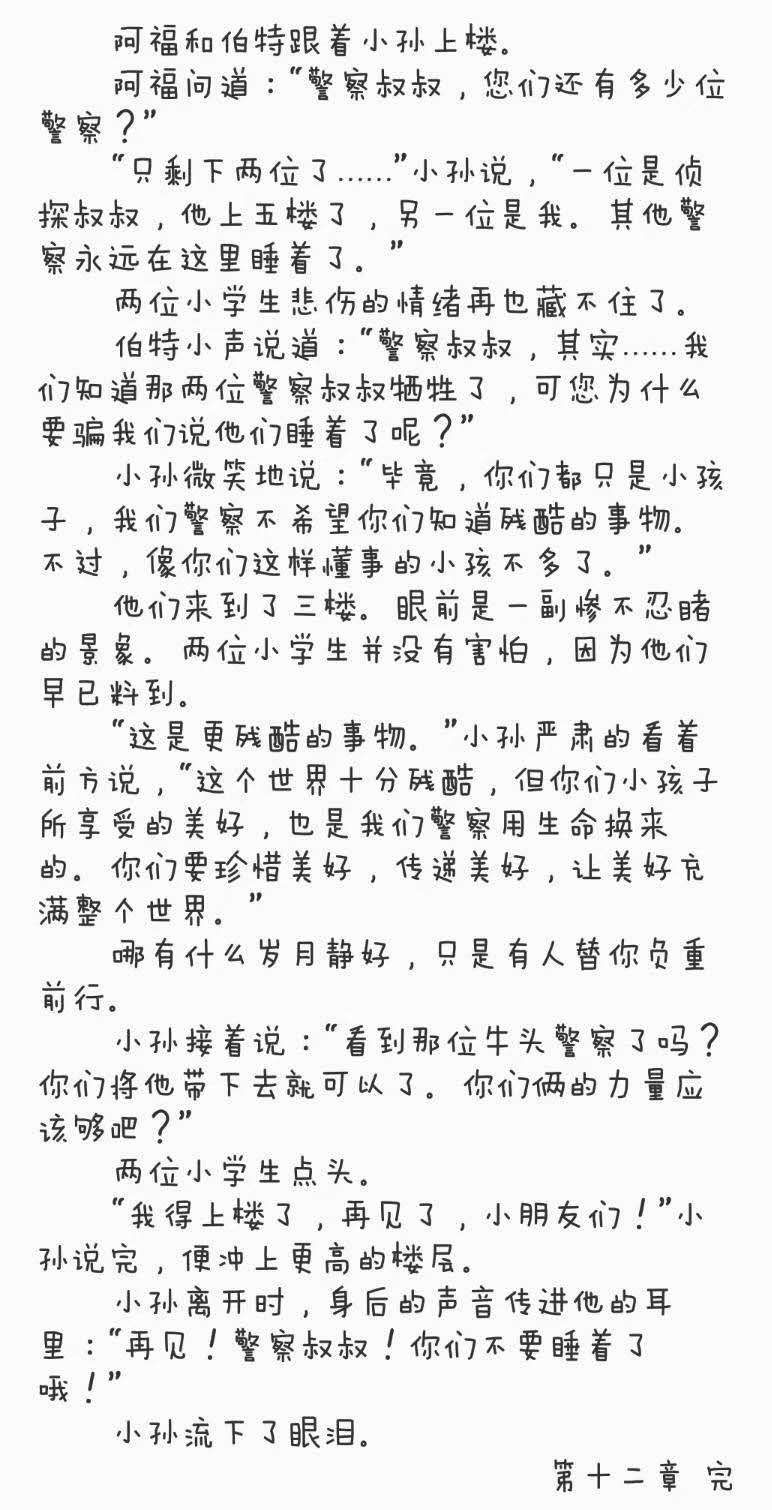 阿福和伯特跟着小孙上楼。
阿福问道：“警察叔叔，您们还有多少位
警察？”
“只剩下两位了……”小孙说，“一位是侦
探叔叔，他上五楼了，另一位是我。其他警
察永远在这里睡着了。”
两位小学生悲伤的情绪再也藏不住了。
伯特小声说道：“警察叔叔，其实……我
们知道那两位警察叔叔牺牲了，可您为什么
要骗我们说他们睡着了呢？”
小孙微笑地说：“毕竟，你们都只是小孩
子，我们警察不希望你们知道残酷的事物。
不过，像你们这样懂事的小孩不多了。”
他们来到了三楼。眼前是一副惨不忍睹
的景象。两位小学生并没有害怕，因为他们
早已料到。
“这是更残酷的事物。”小孙严肃的看着
前方说，“这个世界十分残酷，但你们小孩子
所享受的美好，也是我们警察用生命换来
的。你们要珍惜美好，传递美好，让美好充
满整个世界。”
哪有什么岁月静好，只是有人替你负重
前行。
小孙接着说：“看到那位牛头警察了吗？
你们将他带下去就可以了。你们俩的力量应
该够吧？”
两位小学生点头。
“我得上楼了，再见了，小朋友们！”小
孙说完，便冲上更高的楼层。
小孙离开时，身后的声音传进他的耳
里：“再见！警察叔叔！你们不要睡着了
哦！”
小孙流下了眼泪。
第十二章 完